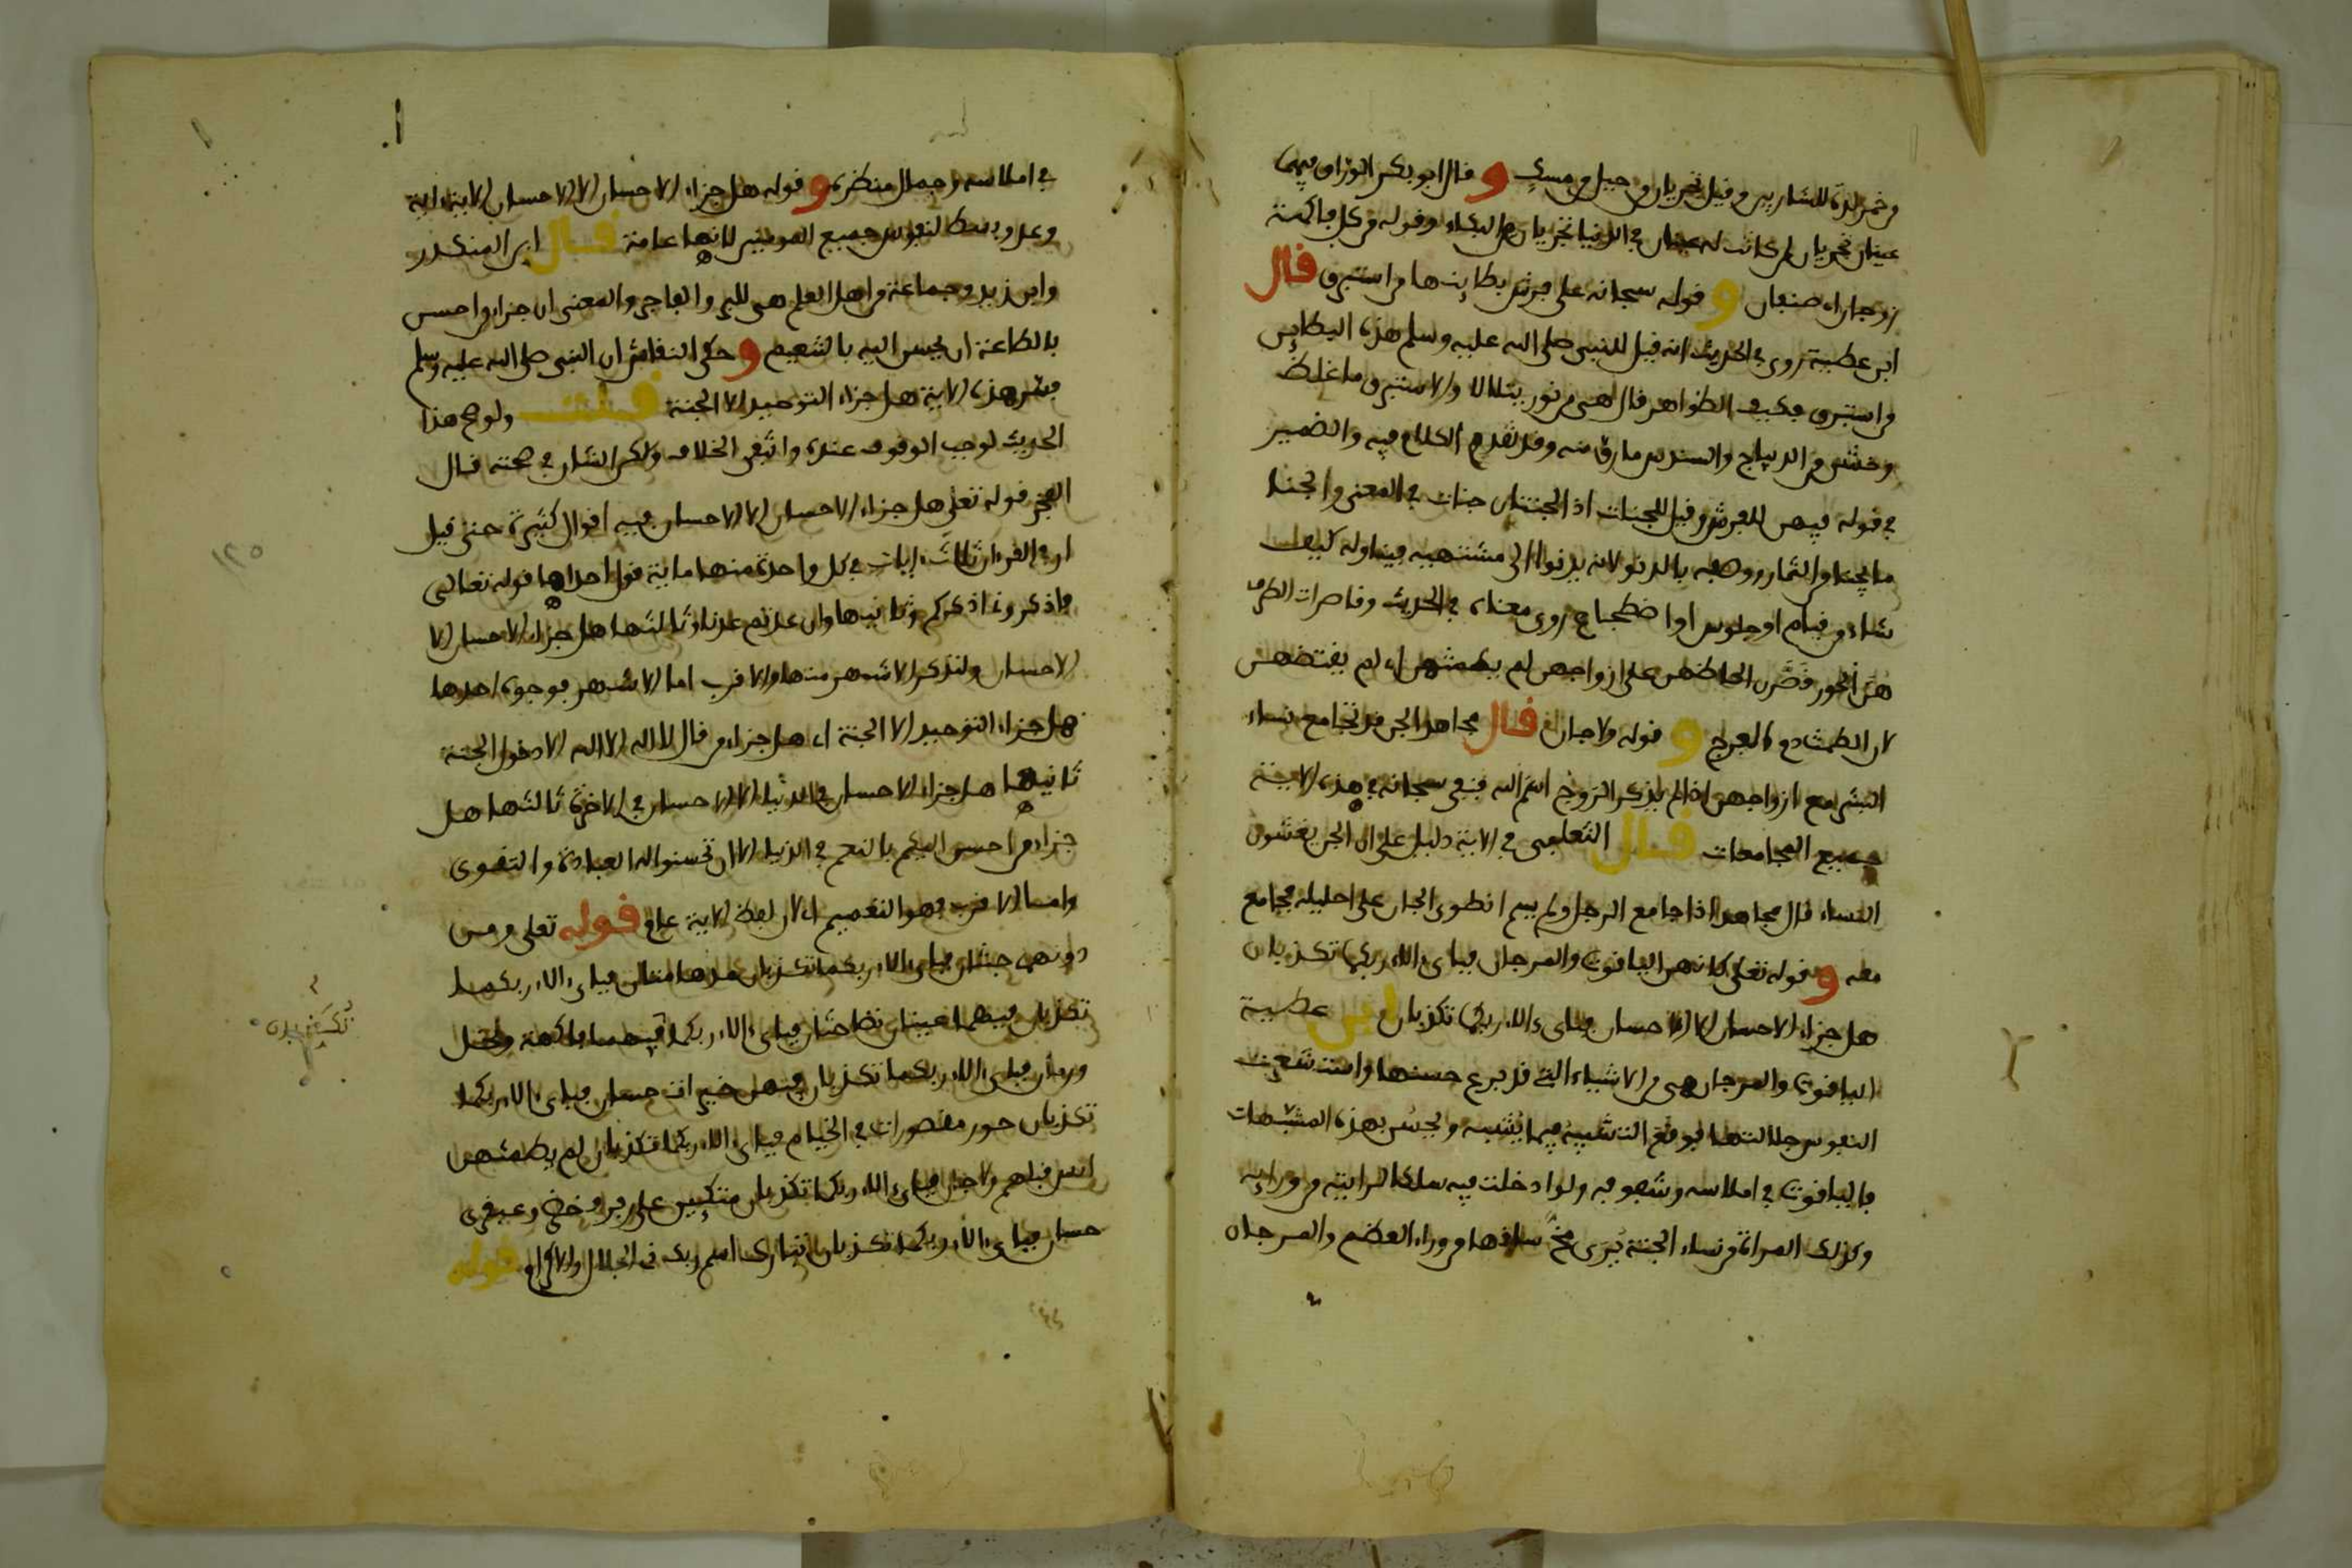 من خمر لذة للشاربين وقيل تجريان من جبل من مسك و قال ابو بكر الوراق فيهما
عينان تجريان لمن كانت له عينان في الدنيا تجريان من البكاء وقوله من كل فاكهة
زوجان اي صنفان و قوله سبحانه على فرش بطاينها من استبرق قال
ابن عطية روي في الحديث انه قيل للنبي صلى الله عليه وسلم هذه البطاين
من استبرق فكيف الظواهر قال هي من نور يتلالا والاستبرق ما غلظ
وخشن من الديباج والسندس ما رق منه وقد تقدم الكلام فيه والضمير
في قوله فيهن للفرش وقيل للجنات اذ الجنتان جنات في المعنى والجنا
ما يجتنا من الثمار ووصفه بالدنو لانه يدنوا الى مشتهيه فيتناوله كيف
شاء من قيام او جلوس او اضطجاع روي معناه في الحديث وقاصرات الطرف
هن الحور قصرن الحاظهن على ازواجهن لم يطمثهن اي لم يفتضهن
لان الطمث دم الفرج و قوله ولا جان قال مجاهد الجن قد تجامع نساء
البشر مع ازواجهن اذا لم يذكر الزوج اسم الله فنفى سبحانه في هذه الاية
جميع المجامعات قال الثعلبي في الاية دليل على ان الجن يغشون
النساء قال مجاهد اذا جامع الرجل ولم يسم انطوى الجان على احليله فجامع
معه و قوله تعلى كانهن الياقوت والمرجان فباي ءالاء ربكما تكذبان
هل جزاء الاحسان الا الاحسان فباي ءالاء ربكما تكذبان ابن عطية
الياقوت والمرجان هي من الاشياء التي قد برع حسنها واستشعرت
النفوس جلالتها فوقع التشبيه فيما يشبه ويحسن بهذه المشبهات
فالياقوت في املاسه وشفوفه ولو ادخلت فيه سلكا لرايته من ورايه
وكذلك المراة من نساء الجنة يرى مخ ساقها من وراء العظم والمرجان
في املاسه وجمال منظره و قوله هل جزاء الاحسان الا الاحسان الاية اية
وعد وبسط لنفوس جميع المومنين لانها عامة قال ابن المنكدر
وابن زيد وجماعة من اهل العلم هي للبر والفاجر والمعنى ان جزاء من احسن
بالطاعة ان يحسن اليه بالتنعيم و حكى النقاش ان النبي صلى الله عليه وسلم
فسر هذه الاية هل جزاء التوحيد الا الجنة قلت ولو صح هذا
الحديث لوجب الوقوف عنده وانتفى الخلاف ولكن الشان في صحته قال
الفخر قوله تعلى هل جزاء الاحسان الا الاحسان فيه اقوال كثيرة حتى قيل
ان في القرءان ثلاث ءايات في كل واحدة منها ماية قول احداها قوله تعالى
فاذكروني اذكركم وثانيها وان عدتم عدنا وثالثها هل جزاء الاحسان الا
الاحسان ولنذكر الاشهر منها والاقرب اما الاشهر فوجوه احدها
هل جزاء التوحيد الا الجنة اي هل جزاء من قال لا اله الا الله الا دخول الجنة
ثانيها هل جزاء الاحسان في الدنيا الا الاحسان في الاخرة ثالثها هل
جزاء من احسن اليكم بالنعم في الدنيا الا ان تحسنوا له العبادة والتقوى
واما الاقرب فهو التعميم اي لان لفظ الاية عام قوله تعلى ومن
دونهما جنتان فباي ءالاء ربكما تكذبان مدهامتان فباي ءالاء ربكما
تكذبان فيهما عينان نضاختان فباي ءالاء ربكما فيهما فاكهة ونخل
تكذبان
ورمان فباي ءالاء ربكما تكذبان فيهن خيرات حسان فباي ءالاء ربكما
تكذبان حور مقصورات في الخيام فباي ءالاء ربكما تكذبان لم يطمثهن
انس قبلهم ولا جان فباي ءالاء ربكما تكذبان متكيين على رفرف خضر وعبقري
حسان فباي ءالاء ربكما تكذبان تبارك اسم ربك ذي الجلال والاكرام قوله
١٢٥